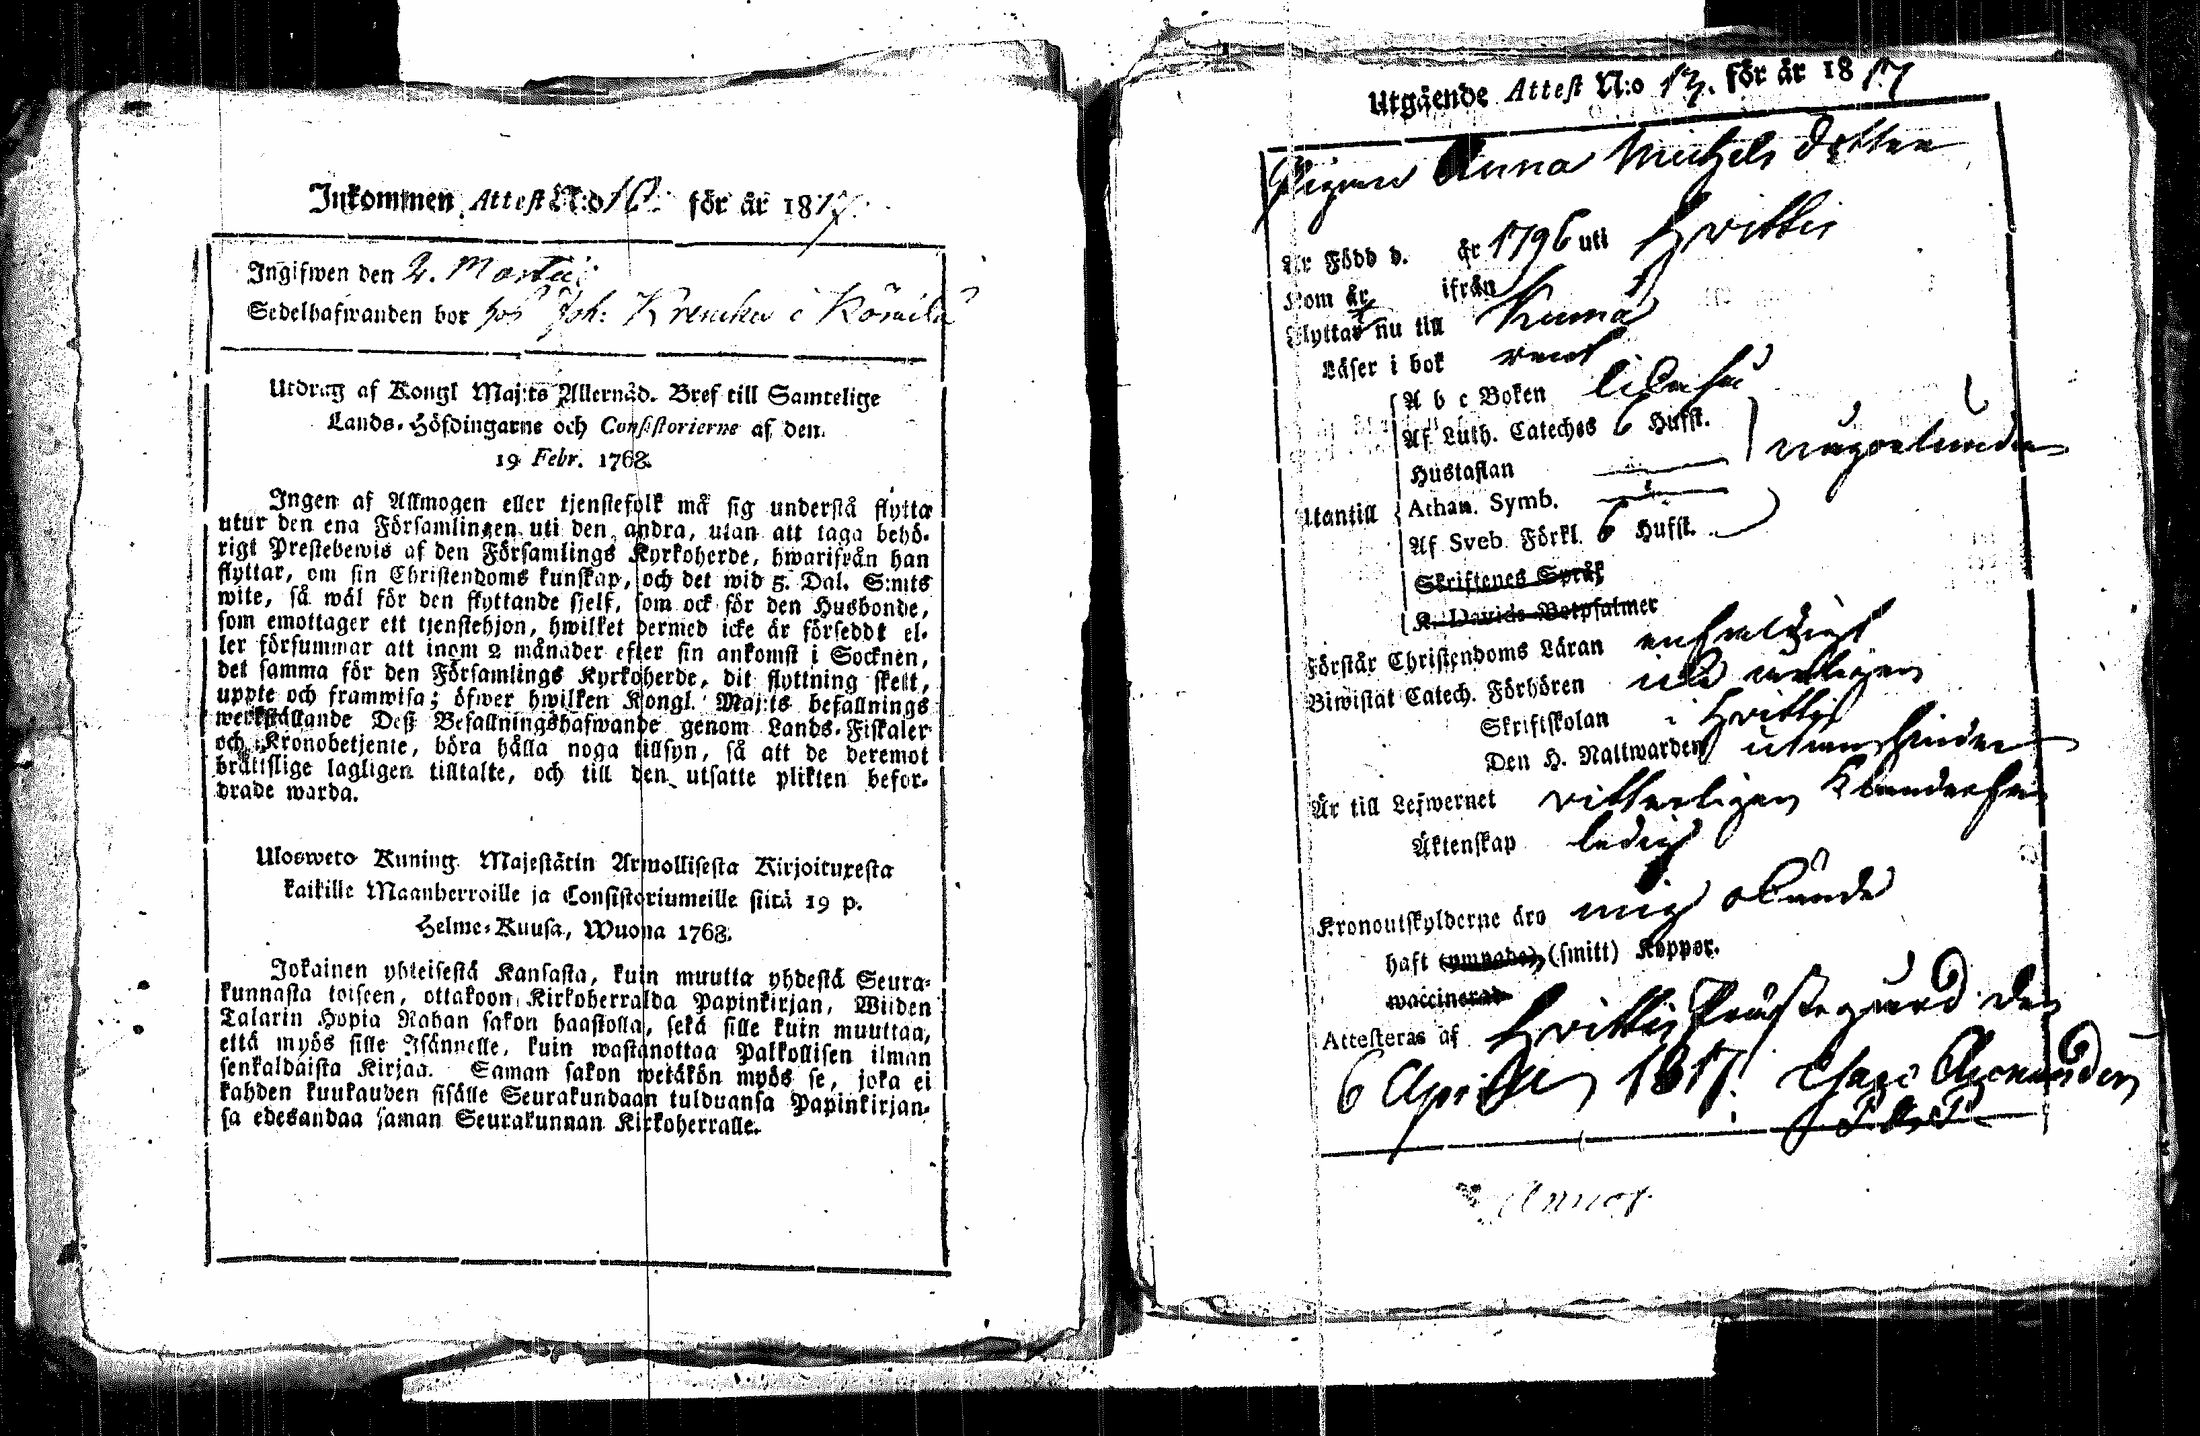 Inkommen Attest N:o 10. för år 1817.
Ingifwen den 2. Martii
Sedelhafwanden bor hos Joh: i
Utdrag af Kongl Maj:ts Allernåd. Bref till Samtelige
Lands-Höfdingarne och Consistorierne af den
19 Febr. 1768.
Ingen af Allmogen eller tjenstefolk må sig understå flytta
utur den ena Församlingen uti den andra, utan att taga behö-
rigt Prestebewis af den Församlings Kyrkoherde, hwarifrån han
flyttar, om sin Christendoms kunskap, och det wid 5. Dal. S:mts
wite, så wäl för den flyttande sjelf, som ock för den Husbonde,
som emottager ett tjenstehjon, hwilket dermed icke är förseddt el-
ler försummar att inom 2 månader efter sin ankomst i Socknen,
det samma för den Församlings Kyrkoherde, dit flyttning skett,
uppte och framwisa; öfwer hwilken Kongl. Maj:ts befallnings
werkställande Deß Befallningshafwande genom Lands-Fiskaler
och Kronobetjente, böra hålla noga tillsyn, så att de deremot
bråttslige lagligen tilltalte, och till den utsatte plikten befor-
drade warda.
Ulosweto Kuning. Majestätin Armollisesta Kirjoituxesta
kaikille Maanherroille ja Consistoriumeille siitä 19 p.
Helme-Kuusa, Wuona 1768.
Jokainen yhteisestä Kansasta, kuin muutta yhdestä Seura-
kunnasta toiseen, ottakoon Kirkoherralda Papinkirjan, Wiiden
Talarin Hopia Rahan sakon haastolla, sekä sille kuin muuttaa,
että myös sille Isännelle, kuin wastanottaa Palkollisen ilman
senkaldaista Kirjaa. Saman sakon wetäkön myös se, joka ei
kahden kuukauden sisälle Seurakundaan tulduansa Papinkirjan-
sa edesandaa saman Seurakunnan Kirkoherralle.
Utgående Attest N:o 13. för år 1817
Pigan Anna Michels dotter
Är Född d. år 1796 uti Hvittis
Kom år ifrån
Flyttar nu till Kumå
Läser i bok rent
A b c Boken
Af Luth. Cateches 6 Hufst.
Hustaflan
Utantill Athan. Symb.
Af Sveb. Förkl. 6 Hufst.
Skriftenes Språk
K. Davids Botpsalmer
Förstår Christendoms Läran enfaldigt
Biwistat Catech. Förhören
Skriftskolan i Hvittis
Den H. Nattwarden utan hinder
Är till Lefwernet
Äktenskap ledig
Kronoutskylderne äro mig okände
haft (ympade) (smitt) Koppor.
waccinerad
Attesteras af Hvittis Prästegård den
6 Aprilis 1817.